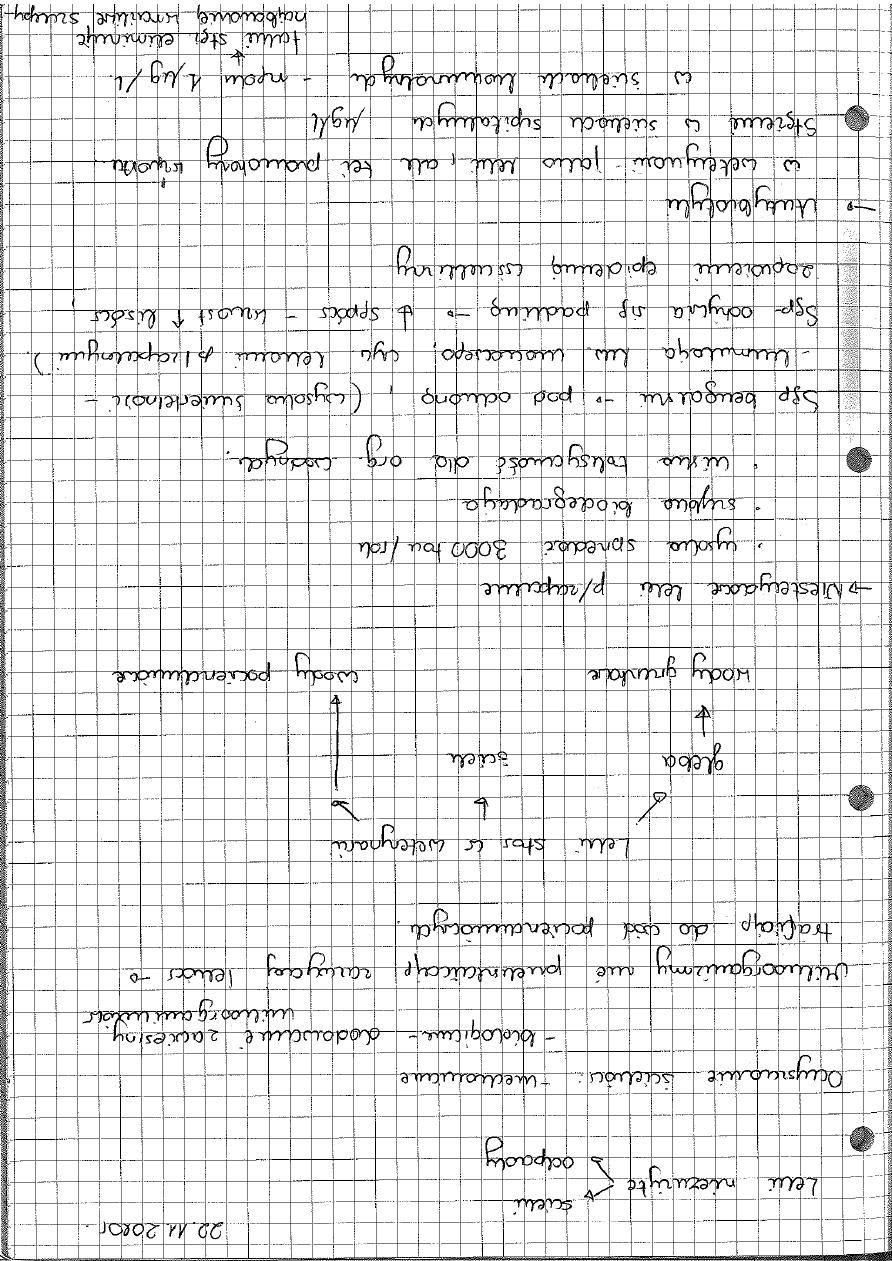 22.11.2020r.
Leki niezużyte
ścieki
odpady
Oczyszczanie ścieków: - mechaniczne
- biologiczne - dodawanie zawiesiny
mikroorganizmów
Mikroorganizmy nie przekształcają zawartych leków →
trafiają do wód powierzchniowych.
Leki stos w weterynarii
gleba ścieki
wody gruntowe wody powierzchniowe
→ Niesterydowe leki p/zapalne
• wysoka sprzedaż 3000 ton/rok
• szybka biodegradacja
• niska toksyczność dla org wodnych.
Sęp bengalski → pod ochroną, (wysoka śmiertelność -
- kumulacja kw. moczowego, czyli lekami p/zapalnymi).
Sęp odżywia się padliną → ↓ sępów - wzrost ↑ lisów,
epidemią wścieklizny
→ Antybiotyki
w weterynarii jako leki, ale też promotory wzrostu
Stężenie w ściekach szpitalnych μg/l
w ściekach komunalnych - rzędu 1 μg/l.
takie stęż eliminuje
najbardziej wrażliwe szczepy